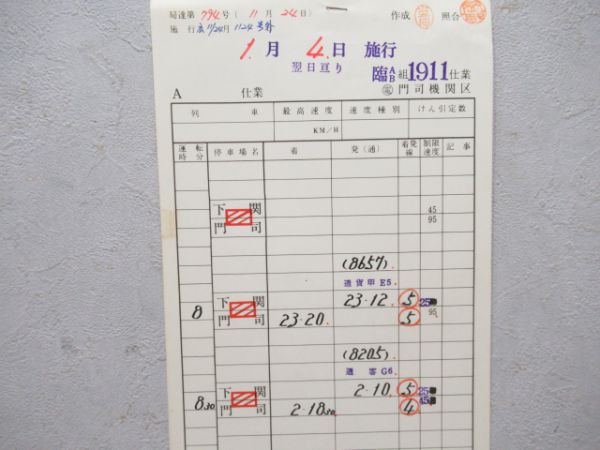 局達第 794号(11月24日) 作成 照合
施行 11/24 1124号外
1月 4日 施行
翌日亘り 臨AB組1911仕業
A 仕業 電 門司機関区
列車 最高速度 速度種別 けん引定数
KM/H
運転時分 停車場名 着 発(通) 着発線 制限速度 記事
下関 45
門司 95
(8657)
通貨甲 E5
8 下関 23.12. 5 25
門司 23.20 5 95
(8205)
通客 G6
830 下関 2.10. 5 25
門司 2.1830 4 45